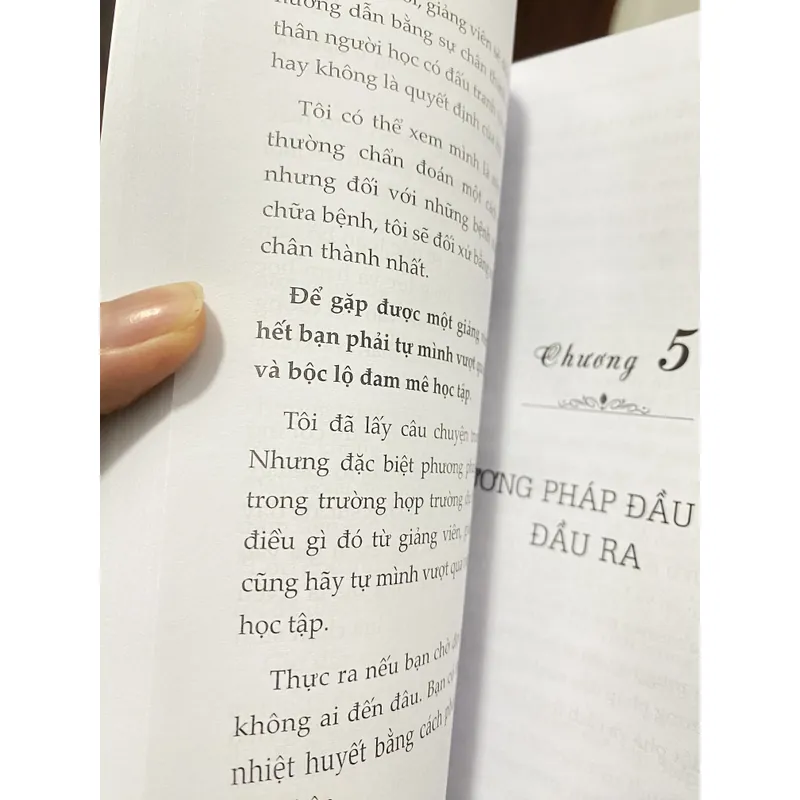 giảng viên sẽ
hướng dẫn bằng sự chân
thân người học có đấu tranh
hay không là quyết định của
Tôi có thể xem mình là
thường chẩn đoán một các
nhưng đối với những bệnh
chữa bệnh, tôi sẽ đối xử bằng
chân thành nhất.
Để gặp được một giảng
hết bạn phải tự mình vượt qu
và bộc lộ đam mê học tập.
Tôi đã lấy câu chuyện
Nhưng đặc biệt phương
trong trường hợp trường
điều gì đó từ giảng viên,
cũng hãy tự mình vượt qua
học tập.
Thực ra nếu bạn chờ
không ai đến đâu. Bạn
nhiệt huyết bằng cách
Chương 5
ƯƠNG PHÁP ĐẦU
ĐẦU RA